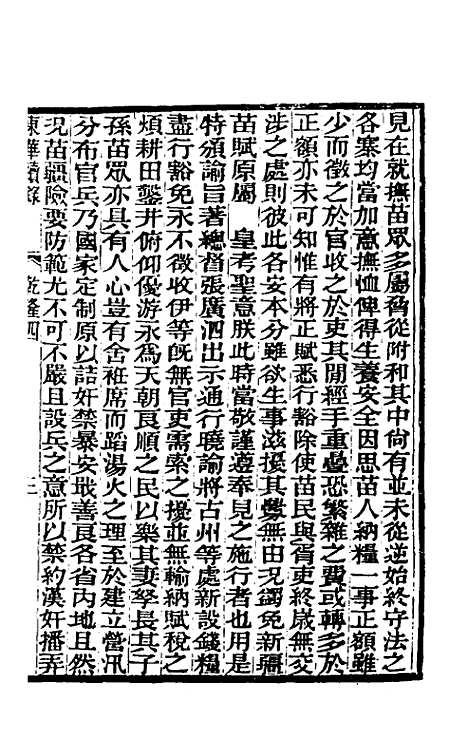 見在就撫苗眾多屬脅從附和其中尚有並未從逆始終守法之
各寨均當加意撫恤俾得生養安全因思苗人納糧一事正額雖
少而徵之於官收之於吏其閒經手重疊恐繁雜之費或轉多於
正額亦未可知惟有將正賦悉行豁除使苗民與胥吏終歲無交
涉之處則彼此各安本分雖欲生事滋擾其釁無由况蠲免新疆
苗賦原屬　皇考聖意朕此時當敬謹遵奉見之施行者也用是
特頒諭旨著總督張廣泗出示通行曉諭將古州等處新設錢糧
盡行豁免永不徵收伊等旣無官吏需索之擾並無輸納賦稅之
煩耕田鑿井俯仰優游永為天朝良順之民以樂其妻孥長其子
孫苗眾亦具有人心豈有舍袵席而蹈湯火之理至於建立營汛
分布官兵乃國家定制原以詰奸禁暴安戢善良各省內地且然
况苗疆險要防範尤不可不嚴且設兵之意所以禁約漢奸播弄
東華續錄　乾隆四　三